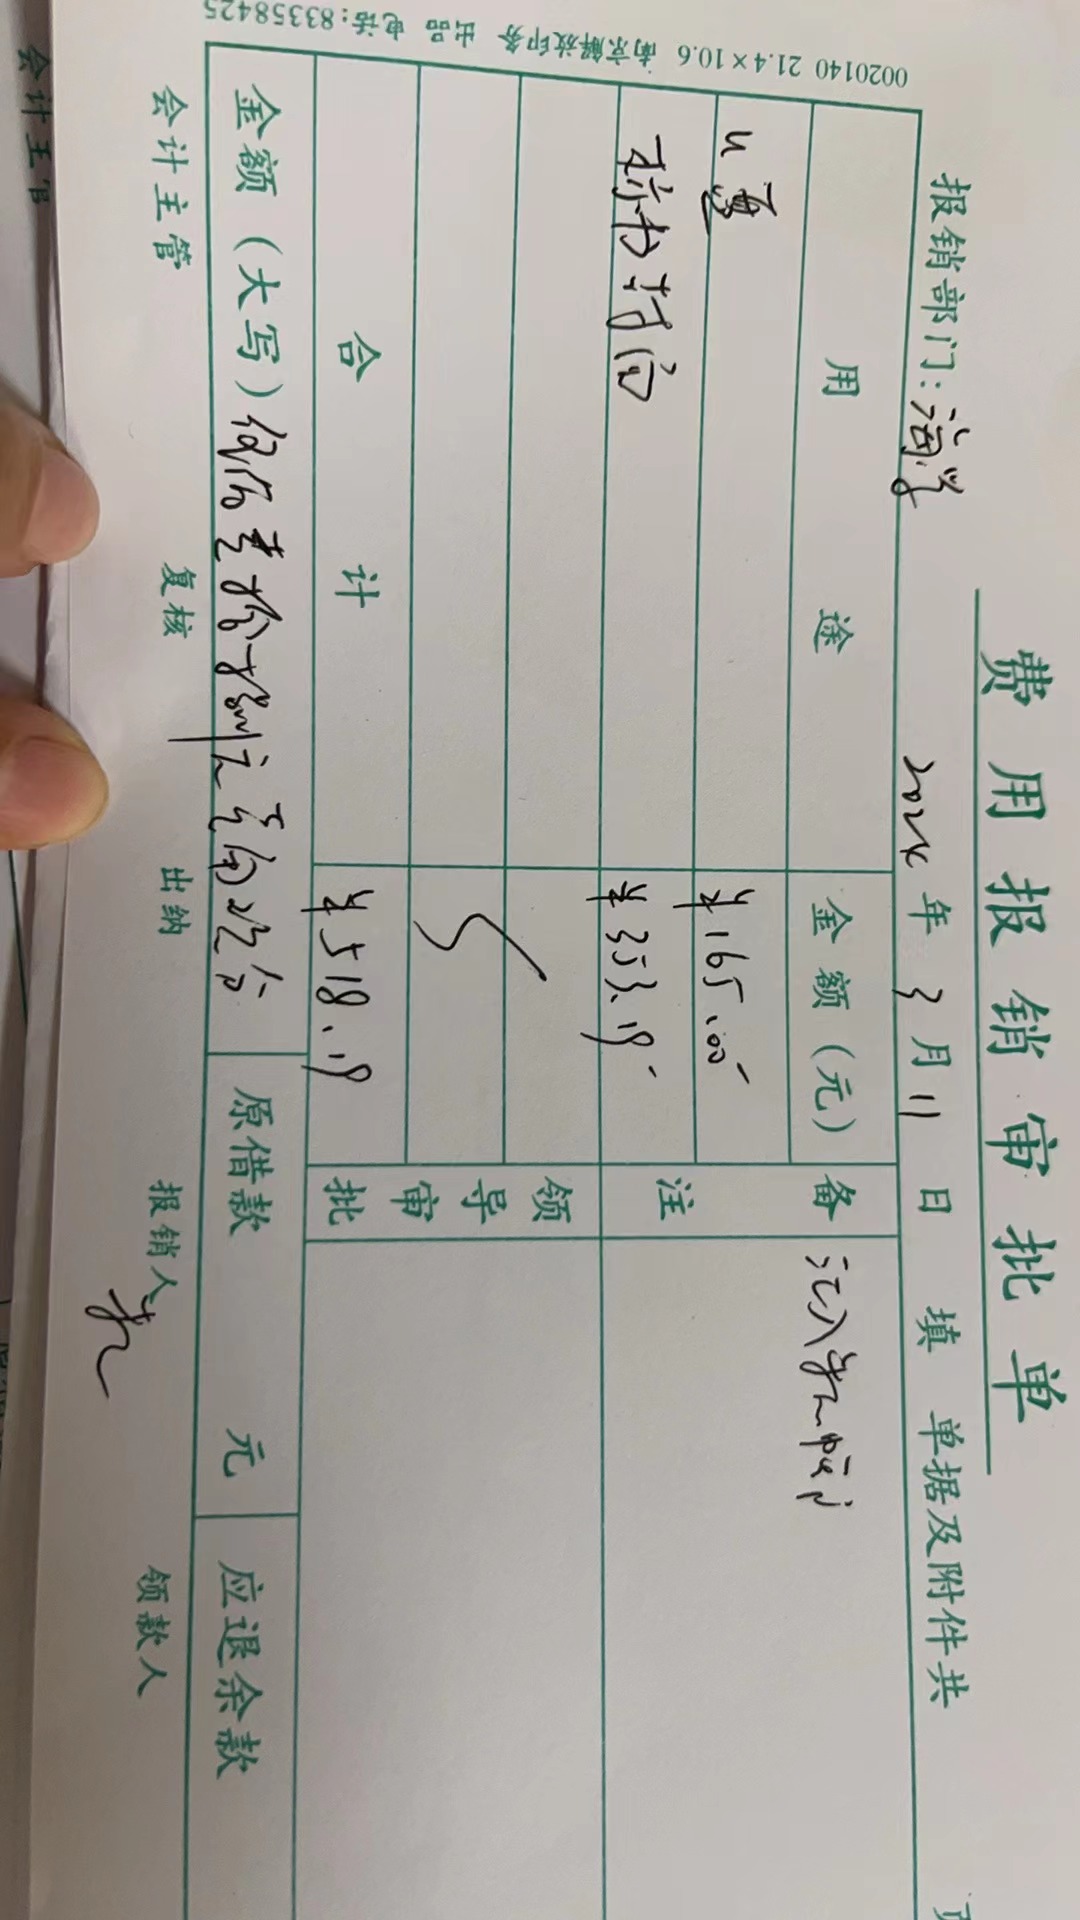 费用报销审批单
报销部门: 2024年3月11日 填 单据及附件共
用途 金额(元) 备注
U盘 ¥165.00
¥353.19
领导审批
合计 ¥518.19
金额(大写)伍佰壹拾捌元壹角玖分 原借款 元 应退余款
会计主管 复核 出纳 报销人 领款人
0020140 21.4×10.6 南京解放印务 出品 电话:83358425
会计主管